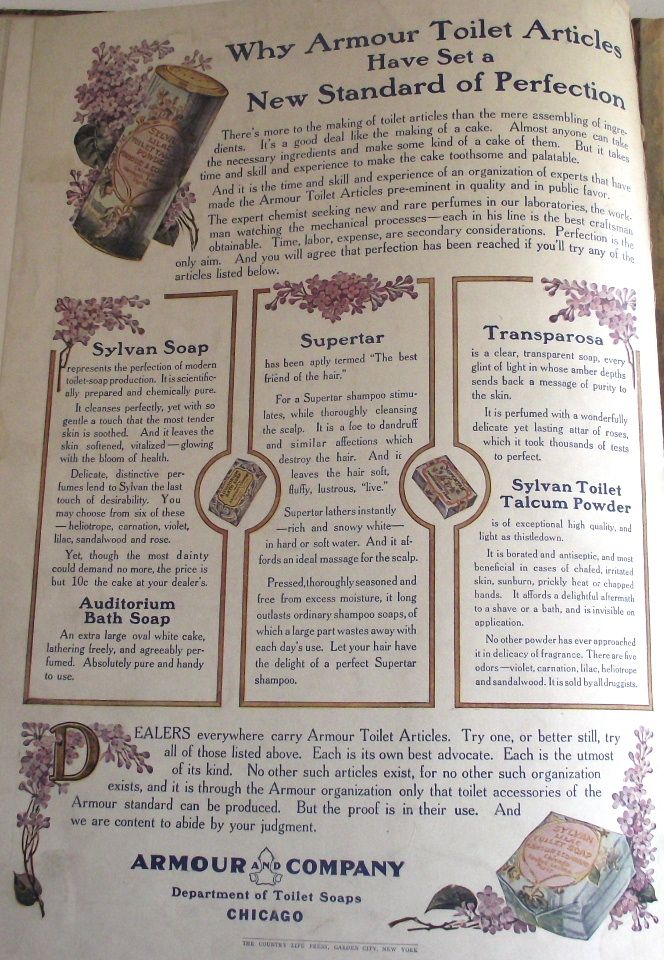 Why Armour Toilet Articles
Have Set a
New Standard of Perfection
There's more to the making of toilet articles than the mere assembling of ingre-
dients. It's a good deal like the making of a cake. Almost anyone can take
the necessary ingredients and make some kind of a cake of them. But it takes
time and skill and experience to make the cake toothsome and palatable.
And it is the time and skill and experience of an organization of experts that have
made the Armour Toilet Articles pre-eminent in quality and in public favor.
The expert chemist seeking new and rare perfumes in our laboratories, the work-
man watching the mechanical processes—each in his line is the best craftsman
obtainable. Time, labor, expense, are secondary considerations. Perfection is the
only aim. And you will agree that perfection has been reached if you'll try any of the
articles listed below.
SYLVAN
LILAC
TOILET TALCUM
POWDER
Sylvan Soap
represents the perfection of modern
toilet-soap production. It is scientific-
ally prepared and chemically pure.
It cleanses perfectly, yet with so
gentle a touch that the most tender
skin is soothed. And it leaves the
skin softened, vitalized—glowing
with the bloom of health.
Delicate, distinctive per-
fumes lend to Sylvan the last
touch of desirability. You
may choose from six of these
—heliotrope, carnation, violet,
lilac, sandalwood and rose.
Yet, though the most dainty
could demand no more, the price is
but 10c the cake at your dealer's.
Auditorium
Bath Soap
An extra large oval white cake,
lathering freely, and agreeably per-
fumed. Absolutely pure and handy
to use.
Supertar
has been aptly termed "The best
friend of the hair."
For a Supertar shampoo stimu-
lates, while thoroughly cleansing
the scalp. It is a foe to dandruff
and similar affections which
destroy the hair. And it
leaves the hair soft,
fluffy, lustrous, "live."
Supertar lathers instantly
—rich and snowy white—
in hard or soft water. And it af-
fords an ideal massage for the scalp.
Pressed, thoroughly seasoned and
free from excess moisture, it long
outlasts ordinary shampoo soaps, of
which a large part wastes away with
each day's use. Let your hair have
the delight of a perfect Supertar
shampoo.
Transparosa
is a clear, transparent soap, every
glint of light in whose amber depths
sends back a message of purity to
the skin.
It is perfumed with a wonderfully
delicate yet lasting attar of roses,
which it took thousands of tests
to perfect.
Sylvan Toilet
Talcum Powder
is of exceptional high quality, and
light as thistledown.
It is borated and antiseptic, and most
beneficial in cases of chafed, irritated
skin, sunburn, prickly heat or chapped
hands. It affords a delightful aftermath
to a shave or a bath, and is invisible on
application.
No other powder has ever approached
it in delicacy of fragrance. There are five
odors—violet, carnation, lilac, heliotrope
and sandalwood. It is sold by all druggists.
DEALERS everywhere carry Armour Toilet Articles. Try one, or better still, try
all of those listed above. Each is its own best advocate. Each is the utmost
of its kind. No other such articles exist, for no other such organization
exists, and it is through the Armour organization only that toilet accessories of the
Armour standard can be produced. But the proof is in their use. And
we are content to abide by your judgment.
ARMOUR AND COMPANY
Department of Toilet Soaps
CHICAGO
SYLVAN
TOILET SOAP
THE COUNTRY LIFE PRESS, GARDEN CITY, NEW YORK